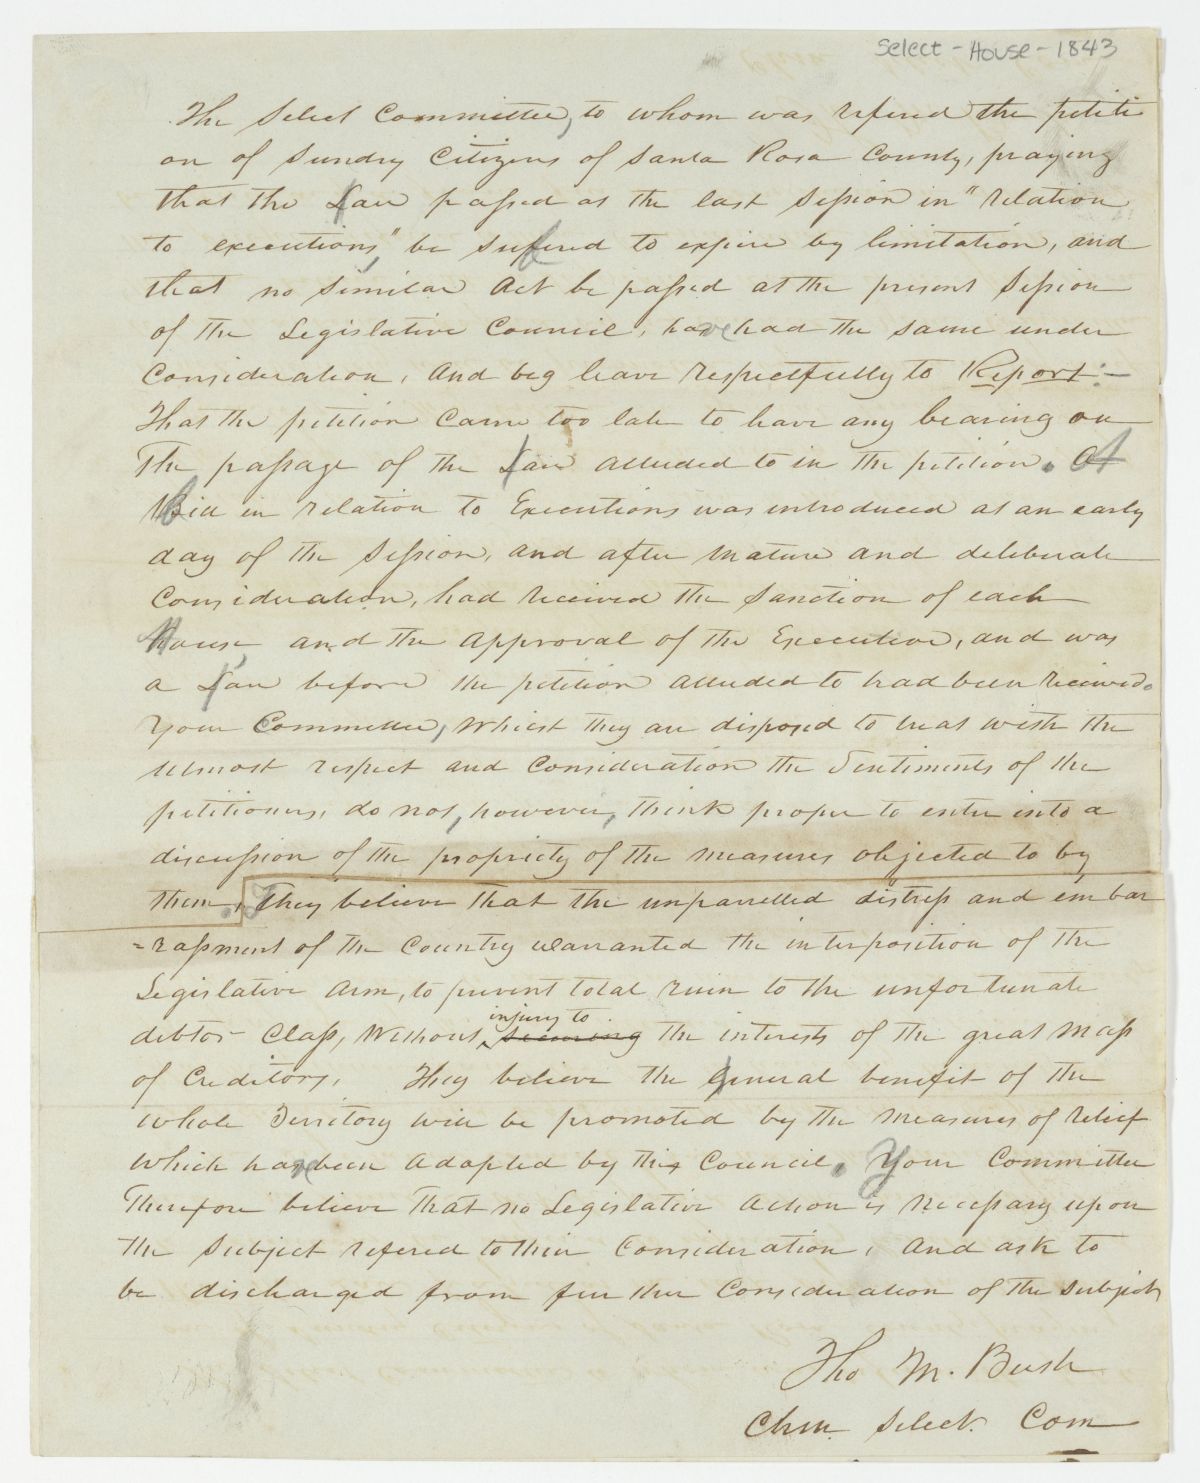 Select - House - 1843
The Select Committee, to whom was refered the petiti
on of Sundry Citizens of Santa Rosa County, praying
that the Law passed at the last Session in "relation
to executions," be sufered to expire by limitation, and
that no similar Act be passed at the present Session
of the Legislative Council, have had the same under
Consideration, And beg leave respectfully to Report:—
That the petition Came too late to have any bearing on
the passage of the Law alluded to in the petition. A
Bill in relation to Executions was introduced at an early
day of the Session, and after mature and deliberate
Consideration, had received the Sanction of each
House, and the approval of the Executive, and was
a Law before the petition alluded to had been received.
Your Committee, Whilst they are disposed to treat with the
utmost respect and Consideration the Sentiments of the
petitioners, do not, however, think proper to enter into a
discussion of the propriety of the measures objected to by
them. They believe that the unparrelled distress and embar
=rassment of the Country warranted the interposition of the
Legislative Arm, to prevent total ruin to the unfortunate
injury to
debtor Class, Without securing the interests of the great mass
of Creditors. They believe the general benefit of the
whole Territory will be promoted by the measures of relief
which have been adopted by this Council. Your Committee
Therefore believe That no Legislative Action is necessary upon
the Subject refered to their Consideration, And ask to
be discharged from further Consideration of the Subject
Tho M. Bush
Chm. Select. Com